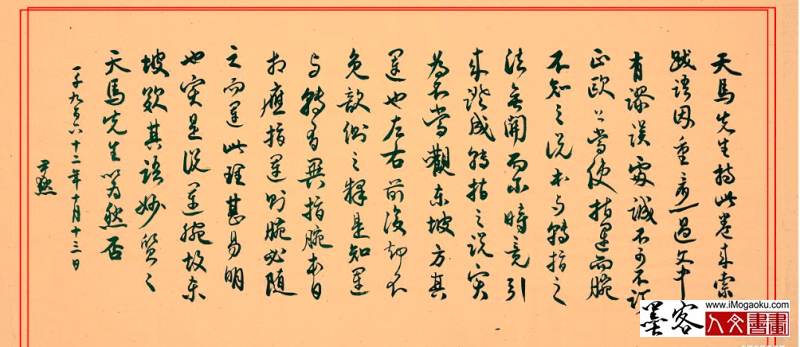 天馬先生持此卷来索
跋語因重商過文中
有謬误處誠不可不訂
正歐公當使指運而腕
不知之说本与轉指之
法無關而余時竟引
来證成轉指之说實
為不當觀東坡方其
運也左右前後却不
免攲側之釋是知運
与轉有異指腕本自
相應指運则腕必随
之而運此理甚易明
也實是说運腕故東
坡歎其語妙質之
天馬先生以為然否
一千九百六十二年十月十三日
尹默
www.iMogaoku.com
墨客人文書畫